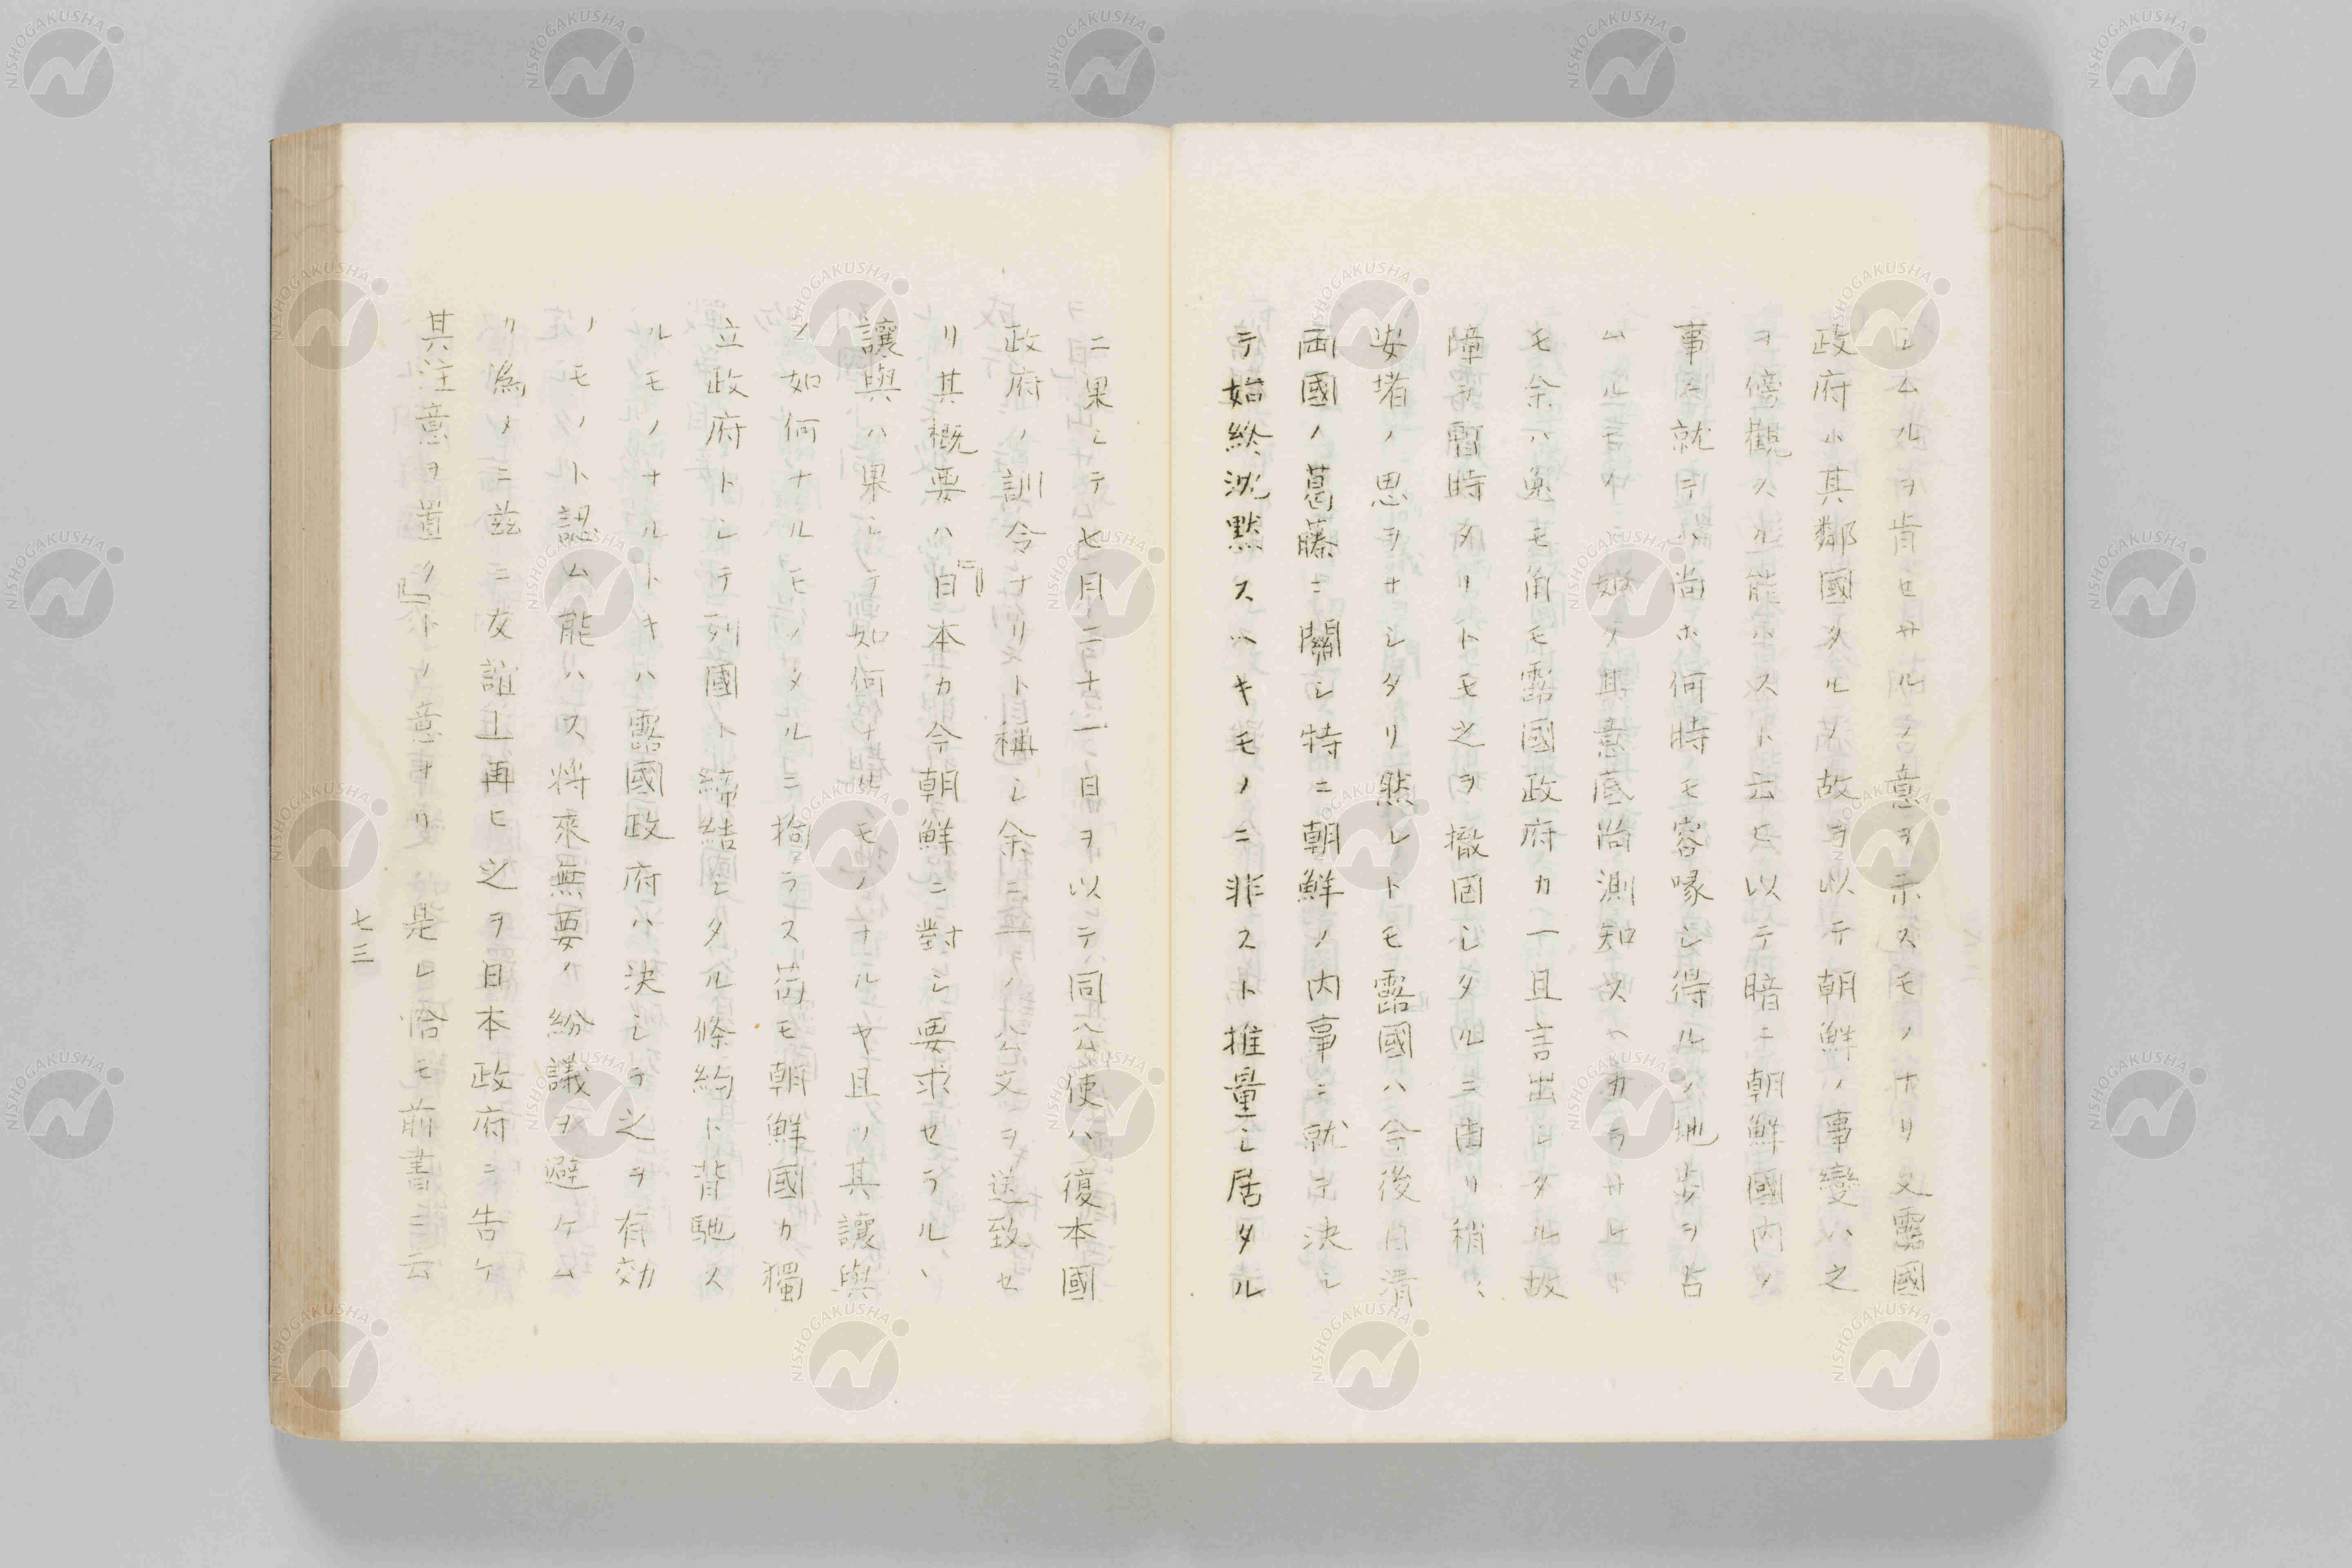 シムルヲ肯セサルノ意ヲ示スモノナリ又露國
政府ハ其鄰國タルノ故ヲ以テ朝鮮ノ事變ハ之
ヲ傍觀スル能ハスト云ヒ以テ暗ニ朝鮮國内ノ
事ニ就テハ尚ホ何時モ容喙シ得ルノ地歩ヲ占
ムルモノニ如ク其意底尚測知スヘカラサルト
モ余ハ兎モ角モ露國政府カ一旦言出シタル故
障ヲ暫時タリトモ之ヲ撤回シタルニ由リ稍〻
安堵ノ思ヲナシタリ然レトモ露國ハ今後日清
両國ノ葛藤ニ關シ特ニ朝鮮ノ内事ニ就テ決シ
テ始終沈黙スヘキモノニ非スト推量シ居タル
ニ果シテ七月二十一日ヲ以テ同公使ハ復本國
政府ノ訓令ナリト自稱シ余ニ一ノ公文ヲ送致セ
リ其概要ハ『日本カ今朝鮮ニ對シ要求セラルヽ
讓與ハ果シテ如何ナルモノナルヤ且ツ其讓與
ノ如何ナルモノタルニ拘ラス苟モ朝鮮國カ獨
立政府トシテ列國ト締結シタル條約ト背馳ス
ルモノナルトキハ露國政府ハ決シテ之ヲ有効
ノモノト認ム能ハス將來無要ノ紛議ヲ避ケム
カ為メニ茲ニ友誼上再ヒ之ヲ日本政府ニ告ケ
其注意ヲ置ク』トノ意ナリ是レ恰モ前書ニ云
七三
NISHOGAKUSHA